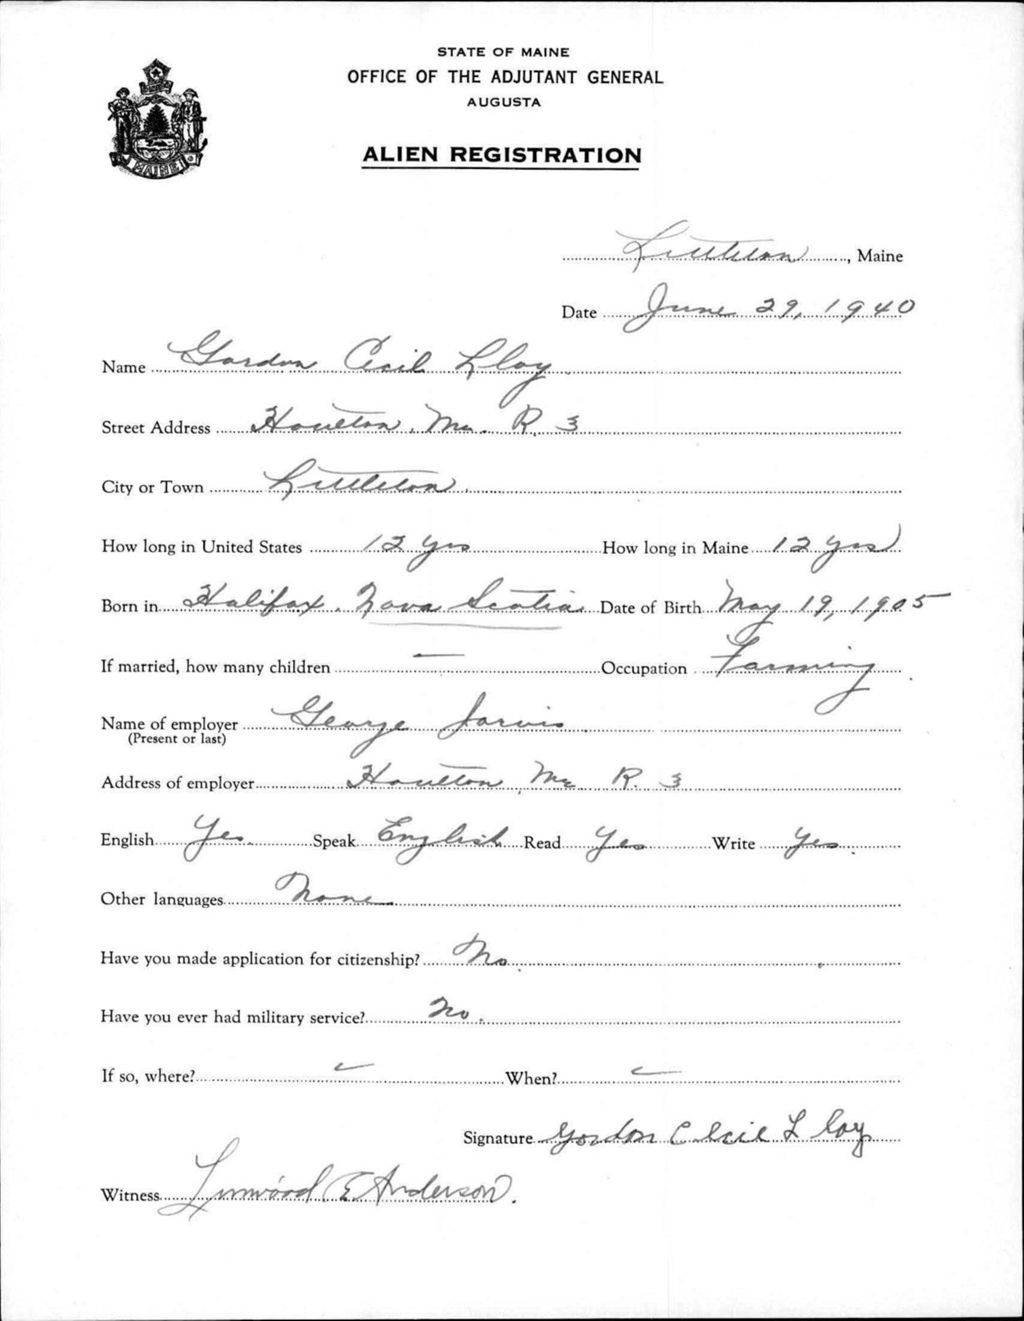 STATE OF MAINE
OFFICE OF THE ADJUTANT GENERAL
AUGUSTA
ALIEN REGISTRATION
MAINE
Littleton, Maine
Date June 29, 1940
Name Gordon Cecil Lloy
Street Address Houlton, Me. R. 3
City or Town Littleton
How long in United States 12 yrs How long in Maine 12 yrs
Born in Halifax, Nova Scotia Date of Birth May 19, 1905
If married, how many children — Occupation Farming
Name of employer George Jarvis
(Present or last)
Address of employer Houlton, Me R. 3
English Yes. Speak English Read Yes Write Yes.
Other languages None
Have you made application for citizenship? No.
Have you ever had military service? No.
If so, where? — When? —
Signature Gordon Cecil Lloy
Witness Linwood E Anderson.